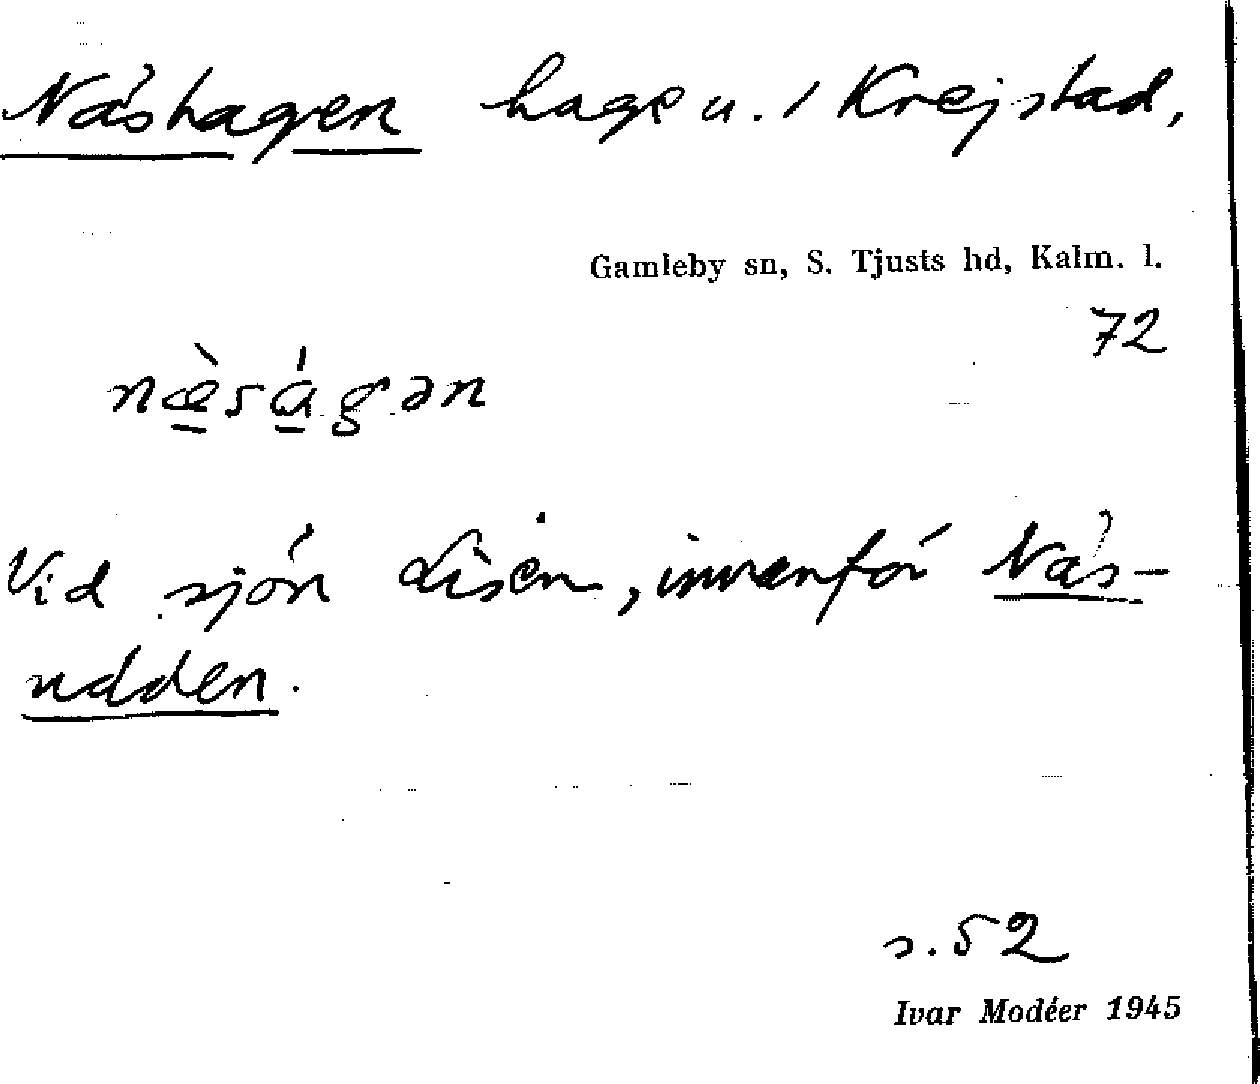 Näshagen hage u. 1 Krejstad,
Gamleby sn, S. Tjusts hd, Kalm. l.
72
næ̀ságən
Vid sjön Lisen, innanför Näs-
udden.
s. 52
Ivar Modéer 1945